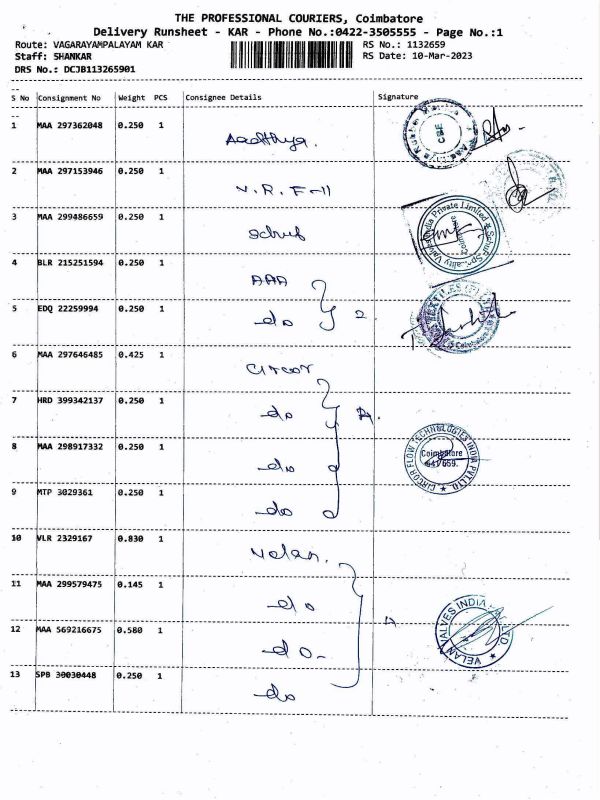 THE PROFESSIONAL COURIERS, Coimbatore
Delivery Runsheet - KAR - Phone No.:0422-3505555 - Page No.:1
Route: VAGARAYAMPALAYAM KAR RS No.: 1132659
Staff: SHANKAR RS Date: 10-Mar-2023
DRS No.: DCJB113265901
S No Consignment No Weight PCS Consignee Details Signature
1 MAA 297362048 0.250 1 Aadthya.
2 MAA 297153946 0.250 1 V.R.F-11
3 MAA 299486659 0.250 1 Schuf
4 BLR 215251594 0.250 1 AAA
5 EDQ 22259994 0.250 1 do 2
6 MAA 297646485 0.425 1 Circor
7 HRD 399342137 0.250 1 do
8 MAA 298917332 0.250 1 do
9 MTP 3029361 0.250 1 do
10 VLR 2329167 0.830 1 Velan.
11 MAA 299579475 0.145 1 do
12 MAA 569216675 0.580 1 do-
13 SPB 30030448 0.250 1 do
CBE
India Private Limited
Coimbatore
CIRCOR FLOW TECHNOLOGIES INDIA PVT LTD
Coimbatore
641 659.
VELAN VALVES INDIA PVT LTD